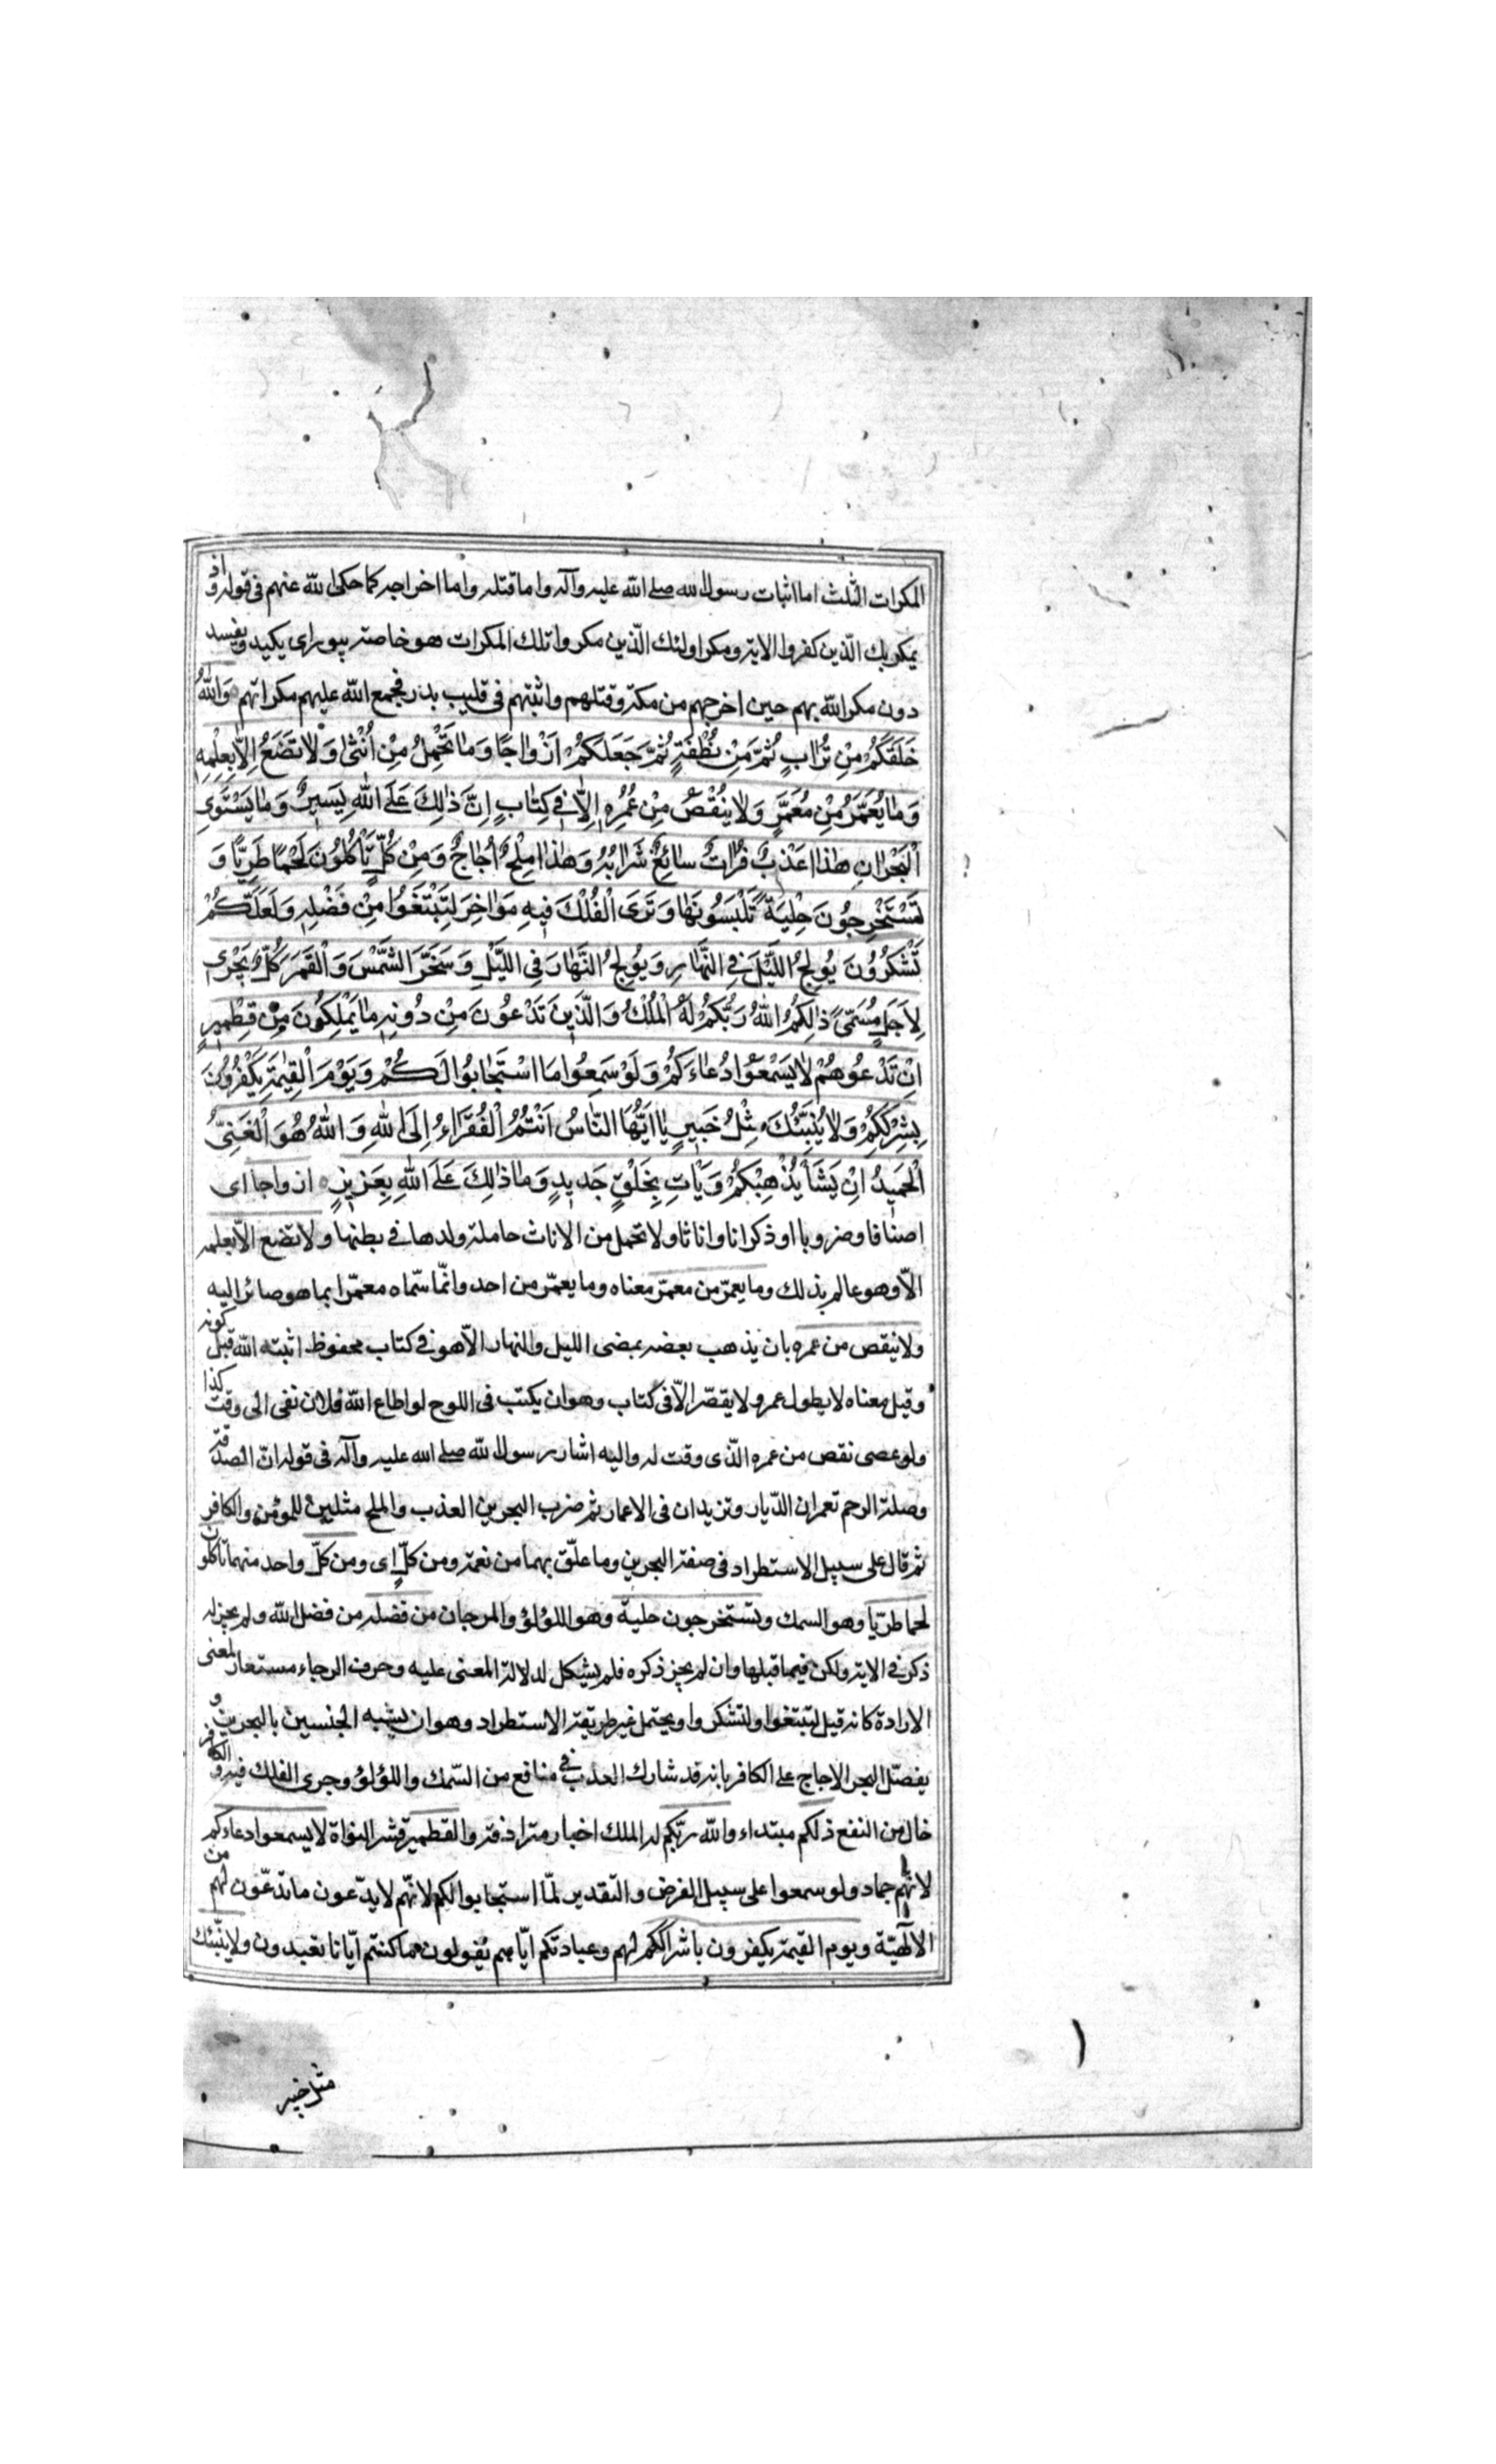 المكرات الثلث اما اثبات رسول الله صلى الله عليه وآله واما قتله واما اخراجه كما حكى الله عنهم فى قوله واذ
يمكر بك الّذين كفروا الاية ومكر اولئك الّذين مكروا تلك المكرات هو خاصة يبور اى يكيد ويفسد
دون مكر الله بهم حين اخرجهم من مكة وقتلهم واثبتهم فى قليب بدر فجمع الله عليهم مكراتهم وَاللّٰهُ
خَلَقَكُمْ مِنْ تُرٰابٍ ثُمَّ مِنْ نُطْفَةٍ ثُمَّ جَعَلَكُمْ اَزْوٰاجًا وَمٰا تَحْمِلُ مِنْ اُنْثٰى وَلٰا تَضَعُ اِلّٰا بِعِلْمِهِ
وَمٰا يُعَمَّرُ مِنْ مُعَمَّرٍ وَلٰا يُنْقَصُ مِنْ عُمُرِهِ اِلّٰا فِى كِتٰابٍ اِنَّ ذٰلِكَ عَلَى اللّٰهِ يَسِيرٌ وَمٰا يَسْتَوِى
الْبَحْرٰانِ هٰذٰا عَذْبٌ فُرٰاتٌ سٰائِغٌ شَرٰابُهُ وَهٰذٰا مِلْحٌ اُجٰاجٌ وَمِنْ كُلٍّ تَأْكُلُونَ لَحْمًا طَرِيًّا وَ
تَسْتَخْرِجُونَ حِلْيَةً تَلْبَسُونَهٰا وَتَرَى الْفُلْكَ فِيهِ مَوٰاخِرَ لِتَبْتَغُوا مِنْ فَضْلِهِ وَلَعَلَّكُمْ
تَشْكُرُونَ يُولِجُ اللَّيْلَ فِى النَّهٰارِ وَيُولِجُ النَّهٰارَ فِى اللَّيْلِ وَسَخَّرَ الشَّمْسَ وَالْقَمَرَ كُلٌّ يَجْرِى
لِاَجَلٍ مُسَمًّى ذٰلِكُمُ اللّٰهُ رَبُّكُمْ لَهُ الْمُلْكُ وَالَّذِينَ تَدْعُونَ مِنْ دُونِهِ مٰا يَمْلِكُونَ مِنْ قِطْمِيرٍ
اِنْ تَدْعُوهُمْ لٰا يَسْمَعُوا دُعٰاءَكُمْ وَلَوْ سَمِعُوا مَا اسْتَجٰابُوا لَكُمْ وَيَوْمَ الْقِيٰمَةِ يَكْفُرُونَ
بِشِرْكِكُمْ وَلٰا يُنَبِّئُكَ مِثْلُ خَبِيرٍ يٰا اَيُّهَا النّٰاسُ اَنْتُمُ الْفُقَرٰاءُ اِلَى اللّٰهِ وَاللّٰهُ هُوَ الْغَنِىُّ
الْحَمِيدُ اِنْ يَشَأْ يُذْهِبْكُمْ وَيَأْتِ بِخَلْقٍ جَدِيدٍ وَمٰا ذٰلِكَ عَلَى اللّٰهِ بِعَزِيزٍ ازواجا اى
اصنافا وضروبا او ذكرانا واناثا ولا تحمل من الاناث حاملة ولدها فى بطنها ولا تضع الّا بعلمه
الّا وهو عالم بذلك وما يعمّر من معمّر معناه وما يعمّر من احد وانّما سمّاه معمّرا بما هو صائر اليه
ولا ينقص من عمره بان يذهب بعضه بمضى الليل والنهار الّا هو فى كتاب محفوظ اثبته الله قبل كونه
وقيل معناه لا يطول عمر ولا يقصّر الّا فى كتاب وهو ان يكتب فى اللوح لو اطاع الله فلان نفى الى وقت كذا
ولو عصى نقص من عمره الّذى وقت له واليه اشار رسول الله صلى الله عليه وآله فى قوله انّ الصدقة
وصلة الرحم تعمران الدّيار وتزيدان فى الاعمار ثم ضرب البحرين العذب والملح مثلين للمؤمن والكافر
ثم قال على سبيل الاستطراد فى صفة البحرين وما علّق بهما من نعمة ومن كلّ اى ومن كلّ واحد منهما تاكلون
لحما طريّا وهو السمك وتستخرجون حلية وهو اللؤلؤ والمرجان من فضله من فضل الله ولم يجز له
ذكر فى الاية ولكن فيما قبلها وان لم يجز ذكره فلم يشكل لدلالة المعنى عليه وحرف الرجاء مستعار لمعنى
الارادة كانه قيل لتبتغوا ولتشكروا ويحتمل غير طريقة الاستطراد وهو ان يشبه الجنسين بالبحرين و
يفضّل البحر الاجاج على الكافر بانه قد شارك العذب فى منافع من السّمك واللؤلؤ وجرى الفلك فيه والكافر
خال من النفع ذلكم مبتداء والله ربّكم له الملك اخبار مترادفة والقطمير قشر النواة لا يسمعوا دعاءكم
لانّهم جماد ولو سمعوا على سبيل الفرض والتقدير لمّا استجابوا لكم لانّهم لا يدّعون ما تدّعون لهم من
الالٓهيّة ويوم القيمة يكفرون باشراككم لهم وعبادتكم ايّاهم يقولون ما كنتم ايّانا تعبدون ولا ينبّئك
مثل خبير